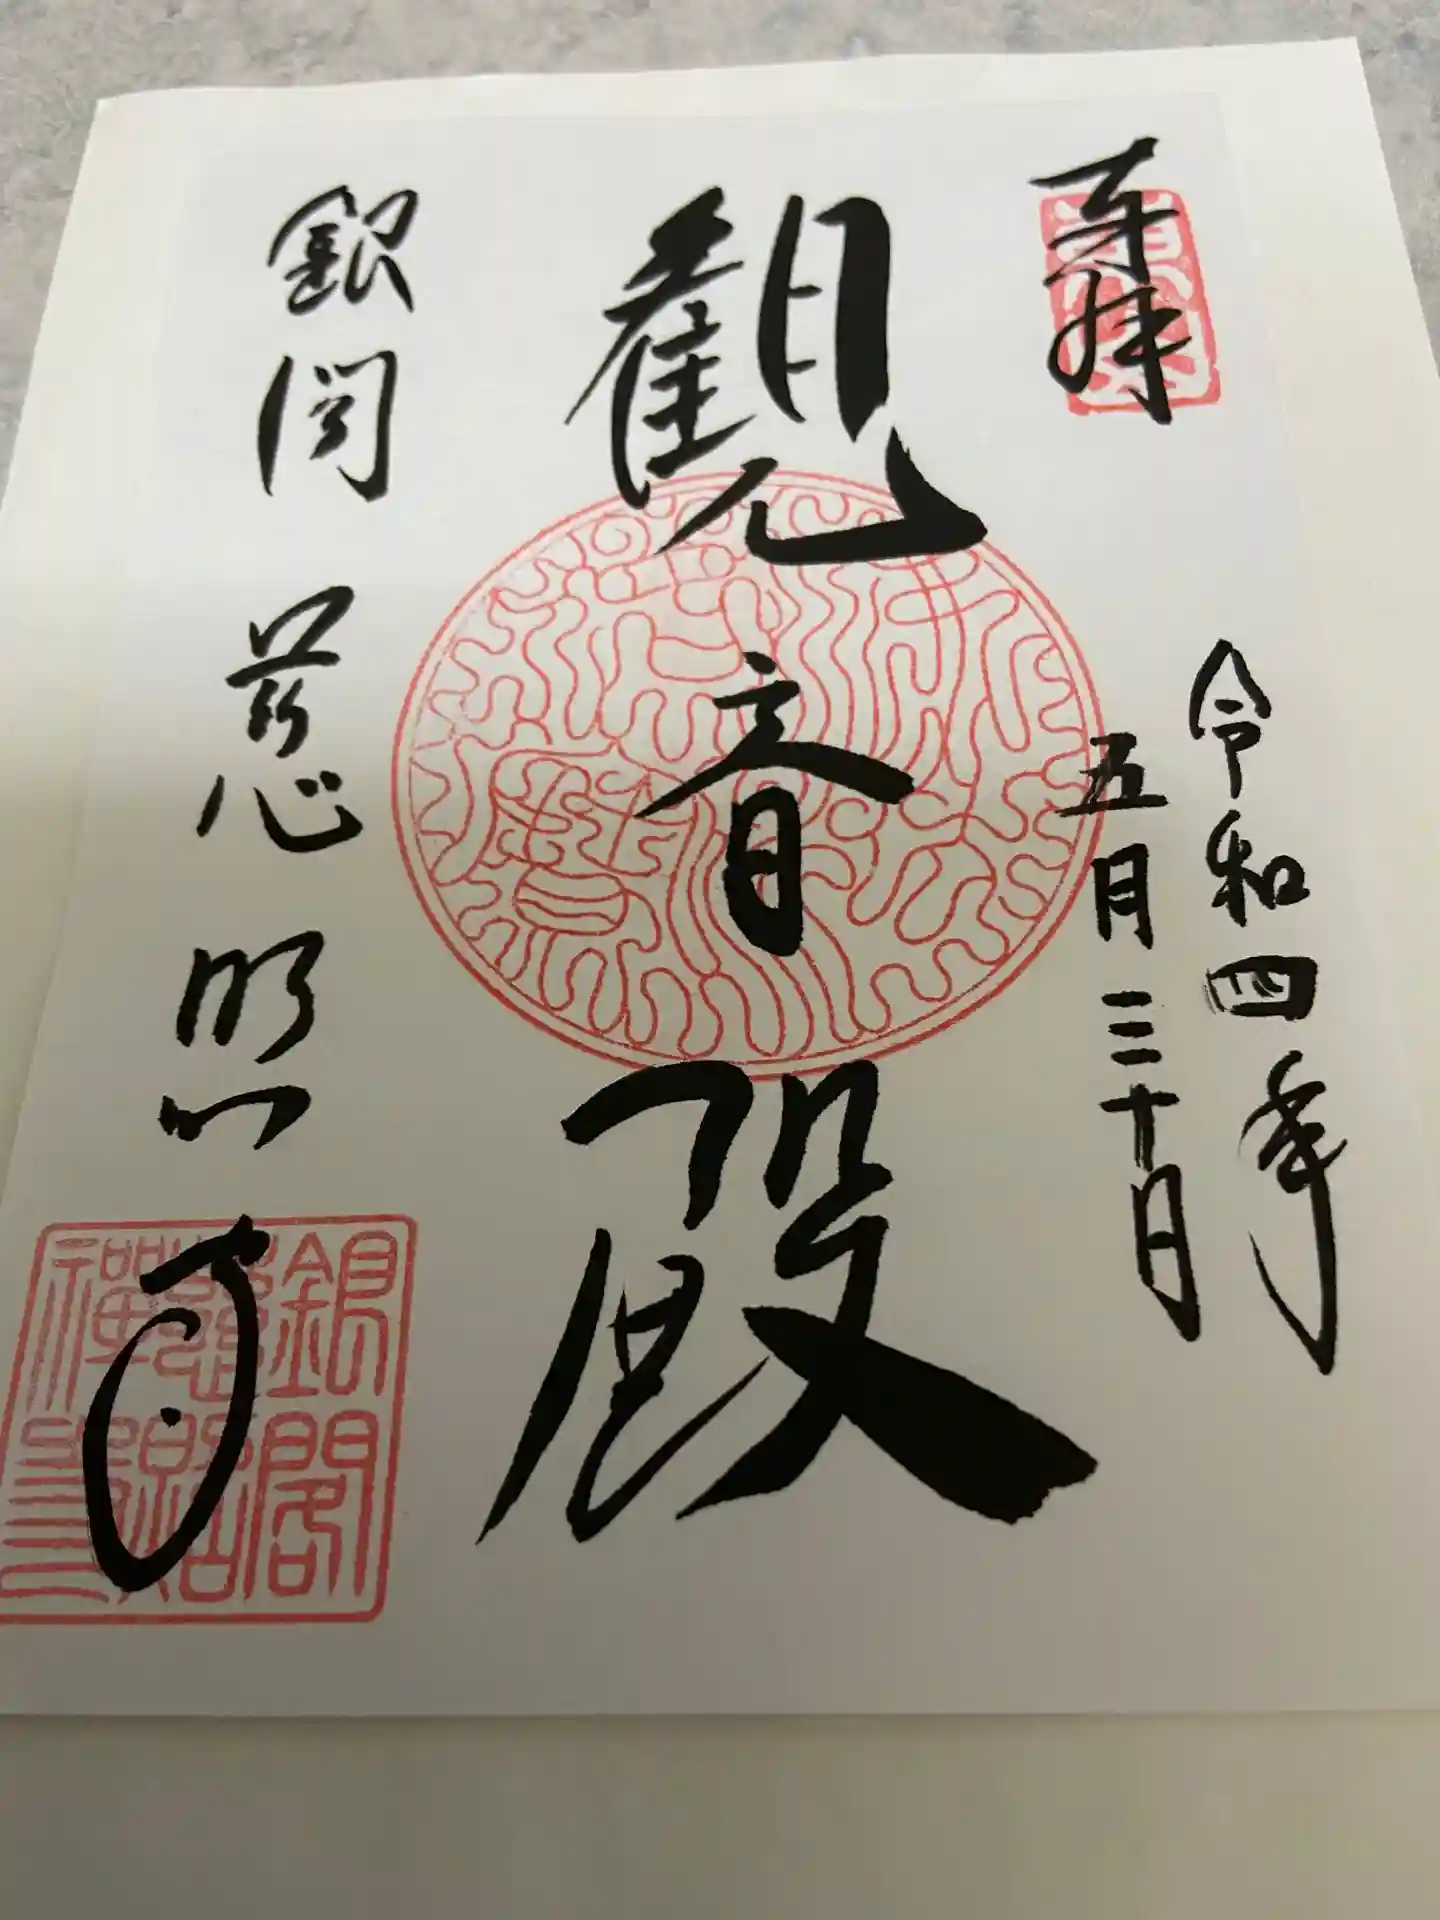 奉拝
令和四年
五月三十日
觀音殿
銀閣慈照寺
銀閣
慈照
禅寺